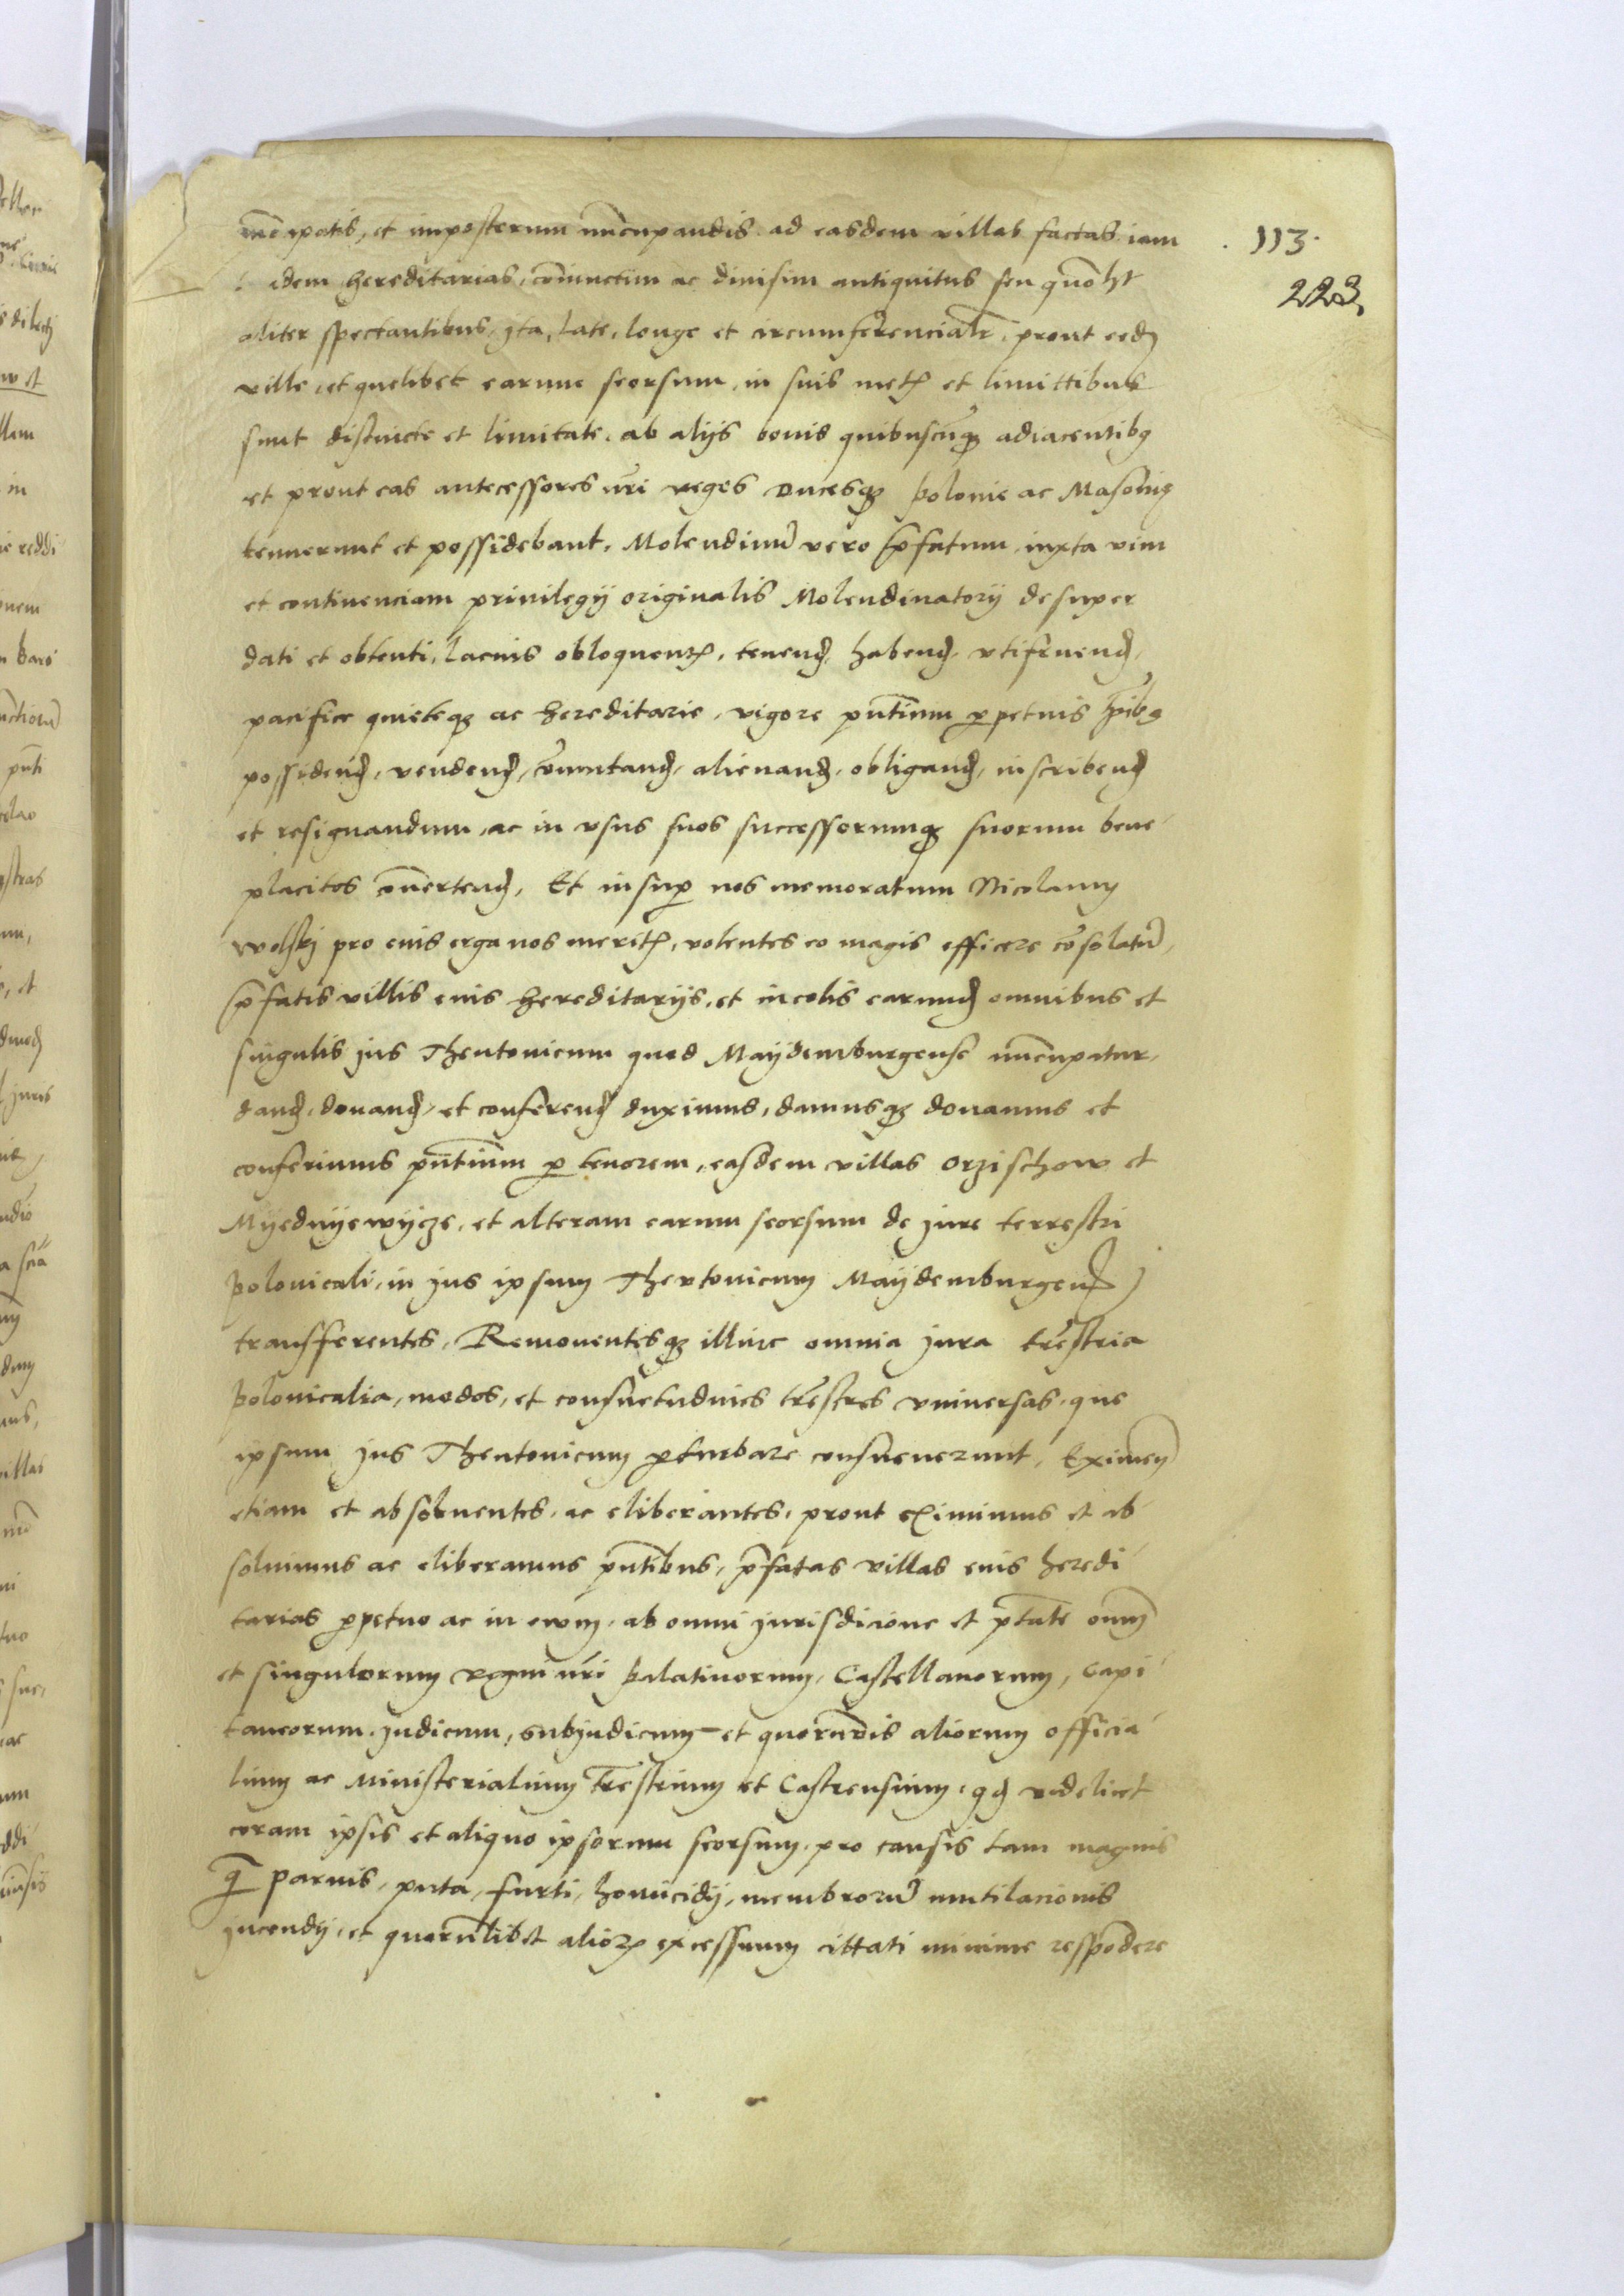 nūcupatis, et imposterum nūcupandis ad easdem villas factas iam
idem hereditarias, cōniunctim ac divisim antiquitus seu quōlȝt
aliter spectantibus, ita, late, longe et circumferencialr̄, prout eedȝ
ville, et quelibet earum seorsum, in suis metꝭ et limittibus
sunt distincte et limitate, ab alijs bonis quibuscūqȝ adiacentibꝯ
et prout eas antecessores nr̄i reges ducesqȝ Polonie ac Masouię
tenuerunt et possidebant, Molendinū vero p̄fatum, iuxta vim
et continenciam privilegij originalis Molendinatorij desuper
dati et obtenti, lacius obloquentꝭ, tenendȝ, habendȝ, vtifruendȝ,
pacifice quieteqȝ ac hereditarie, vigore pn̄tium ꝑpetuis tp̄ibꝯ
possidendȝ, vendendȝ, cōmutandȝ, alienandȝ, obligandȝ, inscribendȝ
et resignandum, ac in vsus suos successorumqȝ suorum bene
placitos cōuertendȝ, Et insuꝑ nos memoratum Nicolaum
Wolskj pro eius erga nos meritꝭ, volentes eo magis efficere cōsolatū,
p̄fatis villis eius hereditarijs, et incolis earundȝ omnibus et
singulis jus Theutonicum quod Maydemburgense nūcupatur,
dandȝ, donandȝ, et conferendȝ duximus, damusqȝ donamus et
conferimus pn̄tium ꝑ tenorem, easdem villas Orzischow et
Myednyewycze, et alteram earum seorsum de jure terrestri
Polonicali, in jus ipsum Thevtonicum Maydemburgenß
transferentes, Remouentesqȝ illinc omnia jura trēstria
Polonicalia, modos, et consuetudines trēstres vniuersas, que
ipsum jus Theutonicum ꝑturbare consueuerunt, Eximen̄
etiam et absoluentes, ac eliberantes, prout eximimus et ab
soluimus ac eliberamus pn̄tibus, p̄fatas villas eius heredi
tarias ꝑpetuo ac in ewm, ab omni jurisdicione et p̄tate om̄m
et singulorum regni nr̄i Palatinorum, Castellanorum, Capi
taneorum, judicum, subjudicum et quorūuis aliorum officia
lium ac Ministerialium Trēstrium et Castrensium, qd videlicet
coram ipsis et aliquo ipsorum seorsum, pro causis tam magnis
q̄ paruis, puta, furti, homicidij, membrorū mutilacionis
jncendij, et quorūlibet alioꝝ excessuum cittati minime respōdere
113.
223